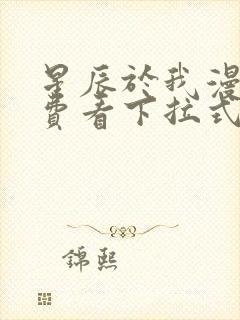 星辰於我漫
費看下拉式
錦熙